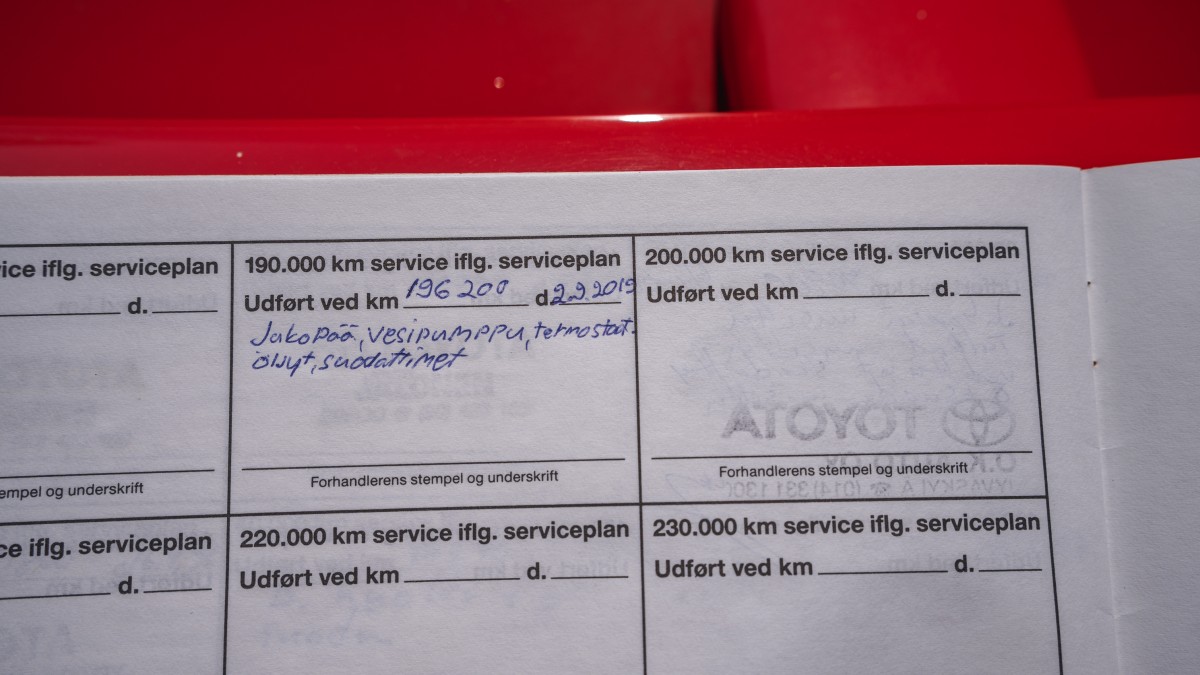 ice iflg. serviceplan
d.
empel og underskrift
190.000 km service iflg. serviceplan
Udført ved km 196 200 d. 2.9.2019
Jakopää, vesipumppu, termostaat.
öljyt, suodattimet
Forhandlerens stempel og underskrift
200.000 km service iflg. serviceplan
Udført ved km d.
TOYOTA
Forhandlerens stempel og underskrift
ce iflg. serviceplan
d.
220.000 km service iflg. serviceplan
Udført ved km d.
230.000 km service iflg. serviceplan
Udført ved km d.